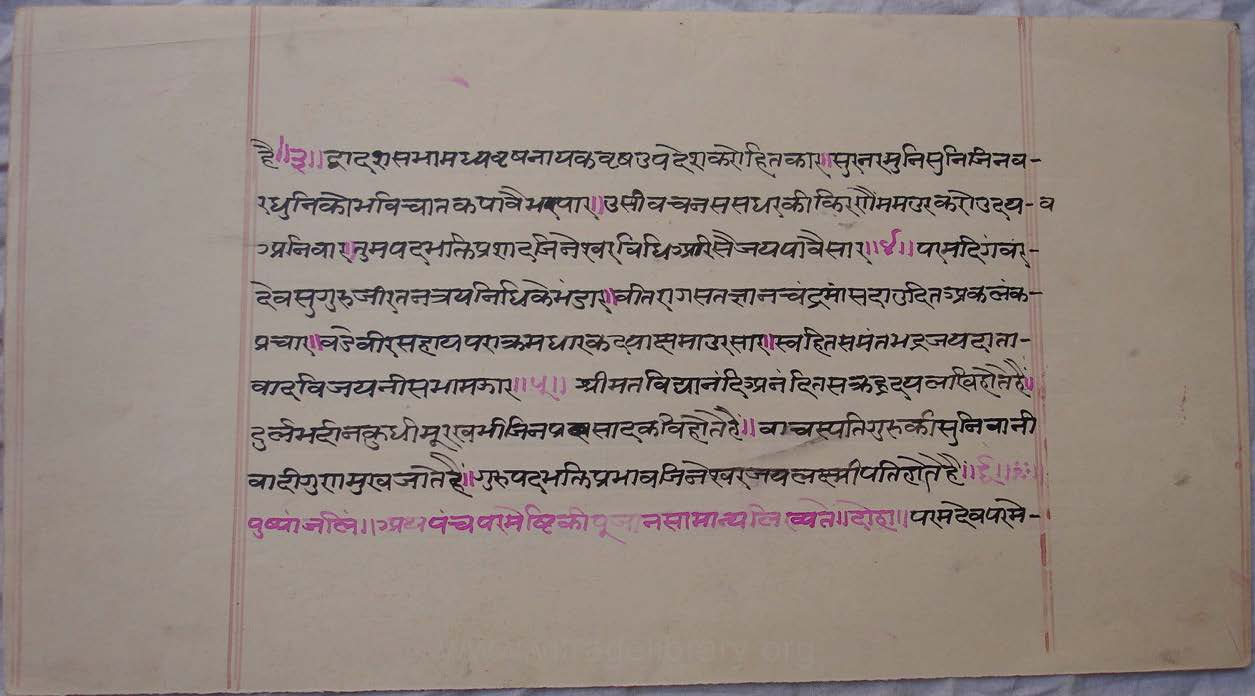 है॥३॥द्वादशसभामध्यवृषनायकवृषउपदेशकरोहितकार॥सुरनरमुनिसुनिजिनव-
रधुनिकौभविचातकपावैभरपार॥उसीवचनससधरकीकिरणौंममउरकरोउदय-व
अनिवार॥तुमपदभक्तिप्रशादजिनेश्वरविधिअरिसैजयपावैसार॥४॥परमदिगंवर-
देवसुगुरुजीरतनत्रयनिधिकेभंडार॥वीतरागसतज्ञानचंद्रमांसदाउदितअकलंक-
प्रचार॥वडेवीरसहायपराक्रमधारकदयाक्षमाउरसार॥स्वहितसमंतभद्रजयदाता-
वादविजयनीसभामझार॥५॥श्रीमतविद्यानंदिअनंदितसक्रहृदयलखिहोतहैं॥
दुर्लभदीनकुधीमूरखभीजिनप्रससादकविहोतैहै॥वाचस्पतिगुरुकीसुनिवानी
वादीगुरामुखजोतैहैं॥गुरुपदभक्तिप्रभावजिनेस्वरजयलक्ष्मीपतिहोतैहै॥६॥
पुष्पांजलिं॥अथपंचपरमेष्टिकीपूजानसामान्यलिख्यते॥दोहा॥परमदेवपरमे-
www.vitragelibrary.org